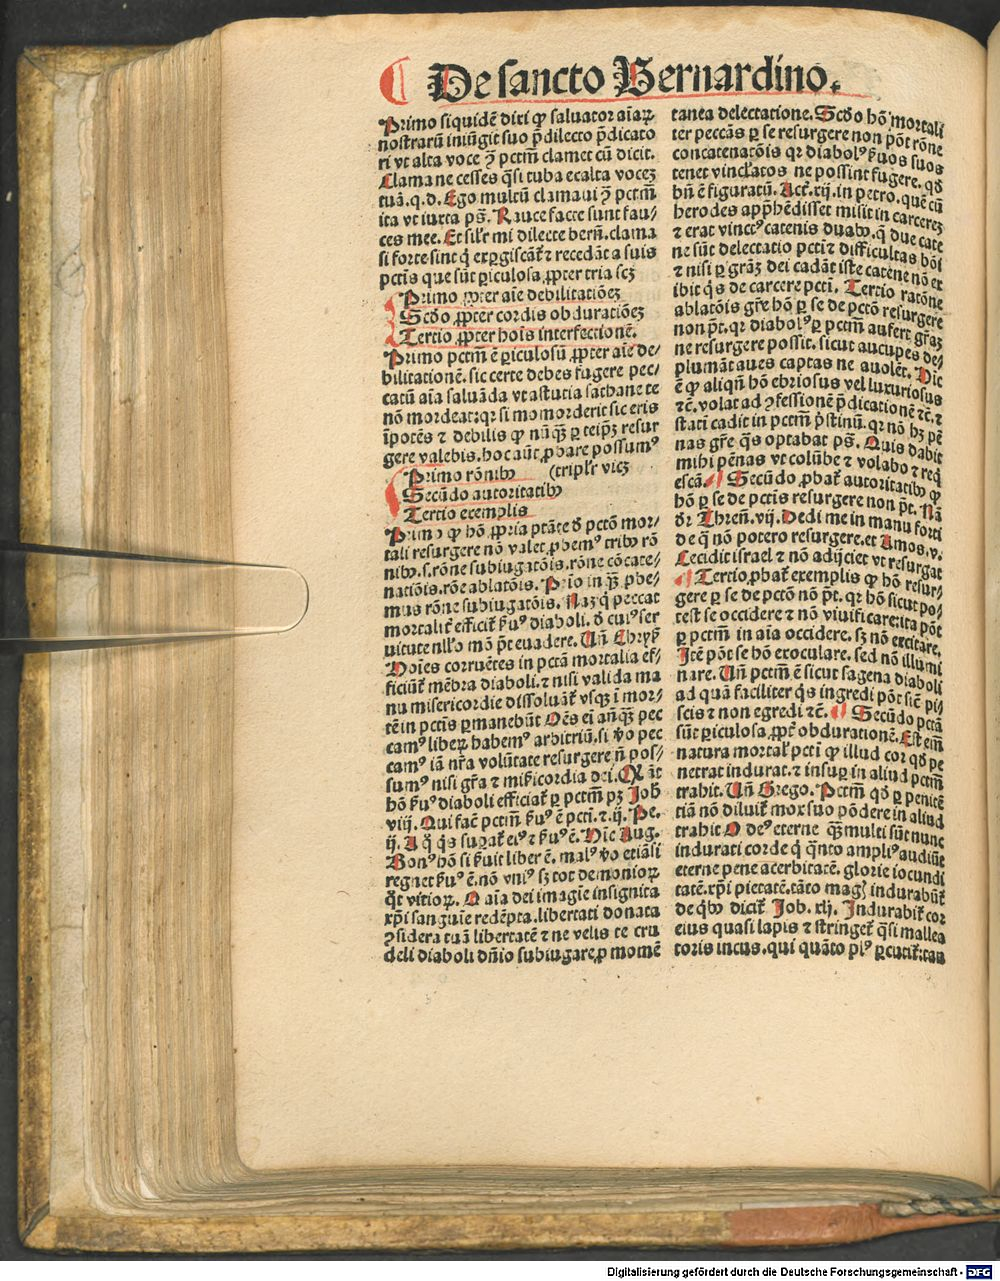 ¶ De sancto Bernardino.
Primo siquidē dixi ꝙ saluator aīaꝝ
nostrarū iniūgit suo p̄dilecto p̄dicato
ri vt alta voce ꝯ pctm̄ clamet cū dicit.
Clama ne cesses q̄si tuba exalta vocez
tuā. q. d. Ego multū clamaui ꝯ pctm̄
ita vt iuxta ps̄. Rauce facte sunt fau/
ces mee. Et sil'r mi dilecte berñ. clama
si forte sint q̇ expgiscāt̄ ⁊ recedāt a suis
pctīs que sūt ꝑiculosa ꝓpter tria scȝ
Primo ꝓpter aīe debilitatiōeȝ
Scd̄o ꝓpter cordis obdurationēȝ
Tertio ꝓpter hoīs interfectionē.
Primo pctm̄ ē ꝑiculosū ꝓpter aīe de/
bilitationē. sic certe debes fugere pec/
catū aīa saluāda vt astutia sathane te
nō mordeat: qr si momorderit sic eris
īpotēs ⁊ debilis ꝙ nūq̄ꝫ ꝑ teipȝ resur
gere valebis. hoc aūt ꝓbare possumꝰ
Primo rōnibꝰ (tripl'r vicȝ
Secūdo autoritatibꝰ
Tertio exemplis
Primo ꝙ hō ꝓpria ptāte d̄ pctō mor/
tali resurgere nō valet ꝓbemꝰ tribꝰ rō
nibꝰ. s. rōne subiugatōis. rōne cōcate/
natiōis. rōe ablatōis. Prīo inq̄ꝫ ꝓbe/
mus rōne subiugatōis. Naȝ q̇ peccat
mortalit̄ efficit̄ ẜuꝰ diaboli. d̄ cuiꝰ ser
uitute nll'o mō pōt euadere. Uñ Chrysꝰ
Hoīes corruētes in pctā mortalia ef/
ficiūt̄ mēbra diaboli. ⁊ nisi valida ma
nu misericordie dissoluāt̄ vsqꝫ ī mor/
tē in pctīs ꝑmanebūt Oēs eī añq̄ꝫ pec
camꝰ liberꝫ habemꝰ arbitriū. si v̄o pec
camꝰ iā nr̄a volūtate resurgere ñ pos/
sumꝰ nisi gr̄a ⁊ mīsericordia dei. Qꝫ āt
hō ẜuꝰ diaboli efficiat̄ ꝑ pctm̄ pȝ Joh̄
viij. Qui facī pctm̄ ẜuꝰ ē pcti. ⁊. ij. Pe.
ij. A q̇ q̇s suꝑat̄ eiꝰ ⁊ ẜuꝰ ē. Hīc Aug.
Bonꝰ hō si ẜuit liber ē. malꝰ v̄o etiāsi
regnet ẜuꝰ ē. nō vniꝰ sȝ tot demonioꝝ
q̊t vitioꝝ. O aīa dei imagīe insignita
xp̄i sanguīe redēpta. libertati donata
ꝯsidera tuā libertatē ⁊ ne velis te cru
deli diaboli dn̄io subiugare ꝓ momē
tanea delectatione. Scd̄o hō mortali
ter peccās ꝑ se resurgere non pōt rōne
concatenatōis qr diabolꝰ ẜuos suos
tenet vincl'atos ne possint fugere. qd̄
bñ ē figuratū. Act̄. xij. in petro. quē cū
herodes app̄hēdisset misit in carcereȝ
⁊ erat vinctꝰ catenis duabꝰ. q̄ due cate
ne sūt delectatio pcti ⁊ difficultas bōi
⁊ nisi ꝑ grāȝ dei cadāt iste catēne nō ex
ibit q̇s de carcere pcti. Tertio ratōne
ablatōis gr̄e hō ꝑ se de pctō resurgere
non pt̄. qr diabolꝰ ꝑ pctm̄ aufert grāȝ
ne resurgere possit. sicut aucupes de/
plumāt aues captas ne auolēt. Hīc
ē ꝙ aliqñ hō ebriosus vel luxuriosus
⁊c̄. volat ad ꝯfessionē p̄dicationē ⁊c̄. ⁊
statī cadit in pctm̄ p̄stinū. qr nō hȝ pē
nas gr̄e q̄s optabat ps̄. Quis dabit
mihi pēnas vt colūbe ⁊ volabo ⁊ req̇
escā. ¶ Secūdo ꝓbat̄ autoritatibꝰ ꝙ
hō ꝑ se de pctīs resurgere non pt̄. Nā
dr̄ Threñ. vij. Dedi me in manu forti
de q̄ nō potero resurgere. et Amos. v.
Cecidit israel ⁊ nō adijciet vt resurgat
¶ Tertio ꝓbat̄ exemplis ꝙ hō resur/
gere ꝑ se de pctō nō pt̄. qr hō sicut po/
test se occidere ⁊ nō viuificare: ita pōt
ꝑ pctm̄ in aīa occidere. sȝ nō excitare.
Itē pōt se hō exoculare. sed nō illumi
nare. Uñ pctm̄ ē sicut sagena diaboli
ad quā faciliter q̇s ingredi pōt sicī pi/
scis ⁊ non egredi ⁊c̄. ¶ Secūdo pctā
sūt ꝑiculosa ꝓpt̄ obdurationē. Est em̄
natura mortal' pcti ꝙ illud cor qd̄ pe
netrat indurat. ⁊ insuꝑ in aliud pctm̄
trahit. Uñ Grego. Pctm̄ qd̄ ꝑ penitē
tiā nō diluit̄ mox suo pōdere in aliud
trahit O deꝰ eterne q̄ꝫ multi sūt nunc
indurati corde q̇ q̄nto ampliꝰ audiūt
eterne pene acerbitatē. glorie iocundi
tatē. xp̄i pietatē. tāto magꝭ indurabūt̄
de q̇bꝰ dicit̄ Job. xlj. Indurabit̄ cor
eius quasi lapis ⁊ stringet̄ q̄si mallea
toris incus. qui quāto plꝰ ꝑcutit̄: tan
Digitalisierung gefördert durch die Deutsche Forschungsgemeinschaft - DFG